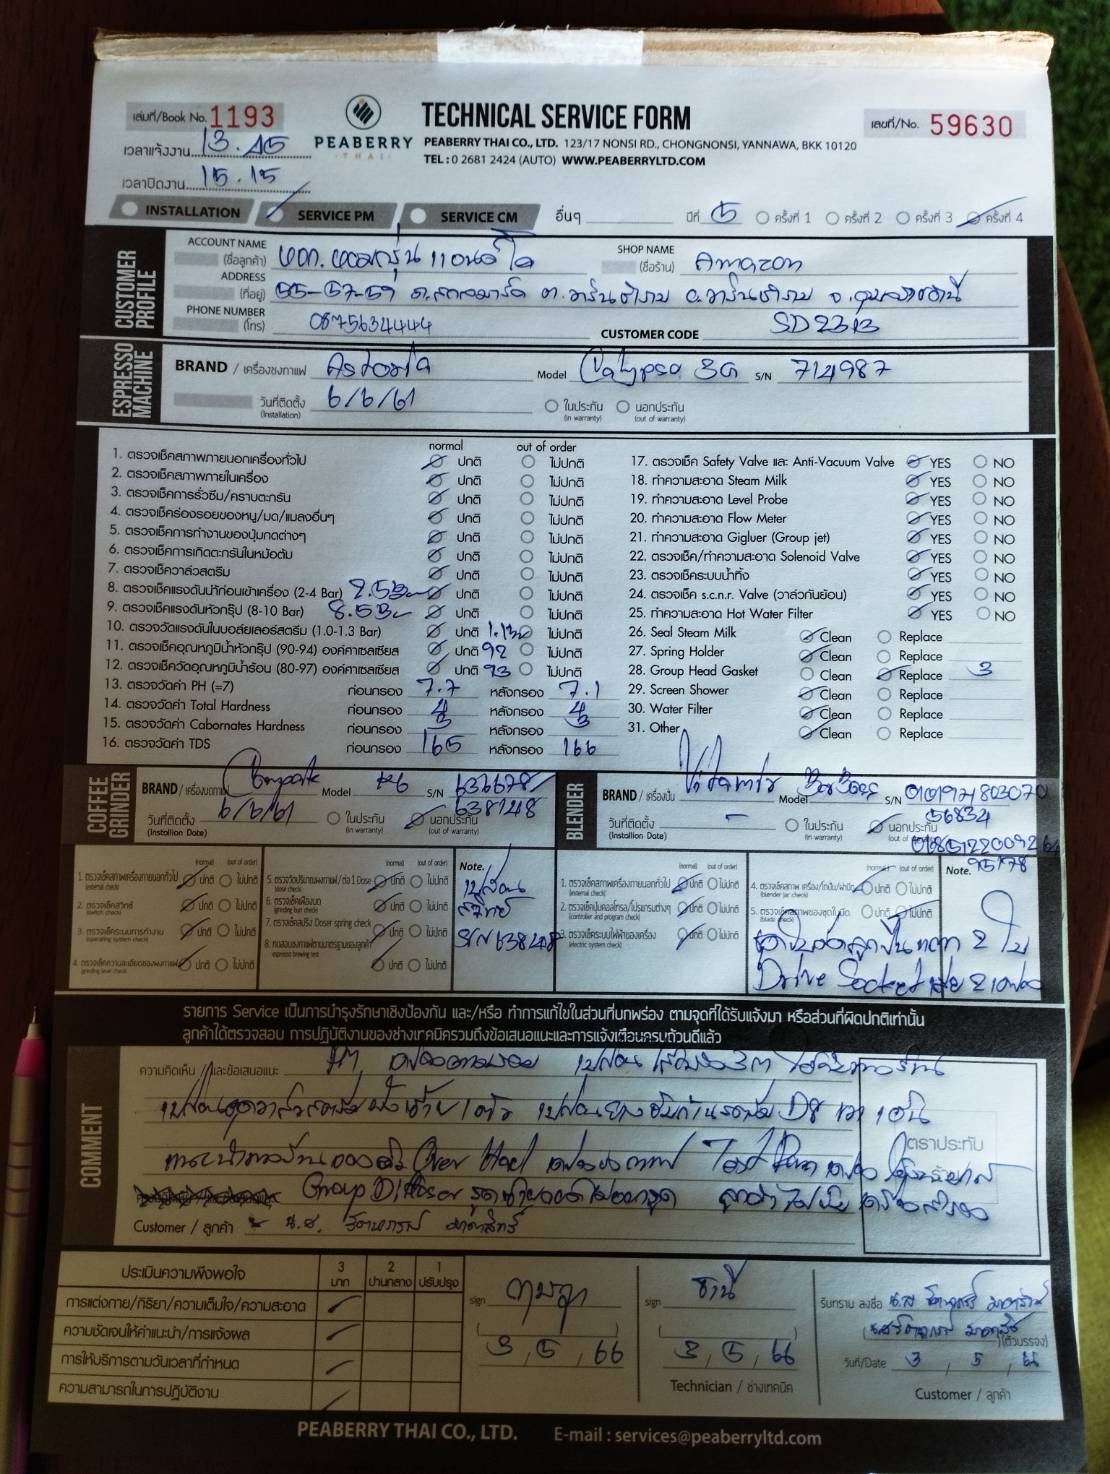 เล่มที่/Book No. 1193
TECHNICAL SERVICE FORM
เลขที่/No. 59630
PEABERRY
THAI
PEABERRY THAI CO., LTD. 123/17 NONSI RD., CHONGNONSI, YANNAWA, BKK 10120
TEL : 0 2681 2424 (AUTO) WWW.PEABERRYLTD.COM
เวลาแจ้งงาน 13.45
เวลาปิดงาน 15.15
INSTALLATION SERVICE PM SERVICE CM อื่นๆ ปีที่ 5 ครั้งที่ 1 ครั้งที่ 2 ครั้งที่ 3 ครั้งที่ 4
CUSTOMER PROFILE
ACCOUNT NAME (ชื่อลูกค้า) หจก.
SHOP NAME (ชื่อร้าน) Amazon
ADDRESS (ที่อยู่) 55-57-59
PHONE NUMBER (โทร) 0875634444
CUSTOMER CODE SD2313
ESPRESSO MACHINE
BRAND / เครื่องชงกาแฟ Astoria Model Calypso 3G S/N 714987
วันที่ติดตั้ง (Installation) 6/6/61 ในประกัน (in warranty) นอกประกัน (out of warranty)
normal out of order
1. ตรวจเช็คสภาพภายนอกเครื่องทั่วไป ปกติ ไม่ปกติ
2. ตรวจเช็คสภาพภายในเครื่อง ปกติ ไม่ปกติ
3. ตรวจเช็คการรั่วซึม/คราบตะกรัน ปกติ ไม่ปกติ
4. ตรวจเช็คร่องรอยของหนู/มด/แมลงอื่นๆ ปกติ ไม่ปกติ
5. ตรวจเช็คการทำงานของปุ่มกดต่างๆ ปกติ ไม่ปกติ
6. ตรวจเช็คการเกิดตะกรันในหม้อต้ม ปกติ ไม่ปกติ
7. ตรวจเช็ควาล์วสตรีม ปกติ ไม่ปกติ
8. ตรวจเช็คแรงดันน้ำก่อนเข้าเครื่อง (2-4 Bar) 2.5Bar ปกติ ไม่ปกติ
9. ตรวจเช็คแรงดันหัวกรุ๊ป (8-10 Bar) 8.5Bar ปกติ ไม่ปกติ
10. ตรวจวัดแรงดันในบอล์ยเลอร์สตรีม (1.0-1.3 Bar) ปกติ ไม่ปกติ
11. ตรวจเช็คอุณหภูมิน้ำหัวกรุ๊ป (90-94) องศาเซลเซียส ปกติ 92 ไม่ปกติ
12. ตรวจเช็ควัดอุณหภูมิน้ำร้อน (80-97) องศาเซลเซียส ปกติ 93 ไม่ปกติ
13. ตรวจวัดค่า PH (=7) ก่อนกรอง 7.7 หลังกรอง 7.1
14. ตรวจวัดค่า Total Hardness ก่อนกรอง 4 หลังกรอง 4
15. ตรวจวัดค่า Cabornates Hardness ก่อนกรอง 3 หลังกรอง 3
16. ตรวจวัดค่า TDS ก่อนกรอง 165 หลังกรอง 166
17. ตรวจเช็ค Safety Valve และ Anti-Vacuum Valve YES NO
18. ทำความสะอาด Steam Milk YES NO
19. ทำความสะอาด Level Probe YES NO
20. ทำความสะอาด Flow Meter YES NO
21. ทำความสะอาด Gigluer (Group jet) YES NO
22. ตรวจเช็ค/ทำความสะอาด Solenoid Valve YES NO
23. ตรวจเช็คระบบน้ำทิ้ง YES NO
24. ตรวจเช็ค s.c.n.r. Valve (วาล์วกันย้อน) YES NO
25. ทำความสะอาด Hot Water Filter YES NO
26. Seal Steam Milk Clean Replace
27. Spring Holder Clean Replace
28. Group Head Gasket Clean Replace 3
29. Screen Shower Clean Replace
30. Water Filter Clean Replace
31. Other Clean Replace
COFFEE GRINDER
BRAND / เครื่องบดกาแฟ Compak Model K6 S/N 636678
638148
วันที่ติดตั้ง (Installion Date) 6/6/61 ในประกัน (in warranty) นอกประกัน (out of warranty)
BLENDER
BRAND / เครื่องปั่น Vitamix Model S/N
56834
วันที่ติดตั้ง (Installion Date) - ในประกัน (in warranty) นอกประกัน
(normal) (out of order) (normal) (out of order)
1. ตรวจเช็คสภาพเครื่องภายนอกทั่วไป (external check) ปกติ ไม่ปกติ
2. ตรวจเช็คสวิทซ์ (switch check) ปกติ ไม่ปกติ
3. ตรวจเช็คระบบการทำงาน (operating system check) ปกติ ไม่ปกติ
4. ตรวจเช็คความละเอียดของผงกาแฟ (grinding level check) ปกติ ไม่ปกติ
5. ตรวจวัดปริมาณผงกาแฟ/ต่อ 1 Dose (dose check) ปกติ ไม่ปกติ
6. ตรวจเช็คเฟืองบด (grinding burr check) ปกติ ไม่ปกติ
7. ตรวจเช็คสปริง Doser spring check ปกติ ไม่ปกติ
8. ทดสอบชงกาแฟตามมาตรฐานของลูกค้า espresso brewing test ปกติ ไม่ปกติ
Note.
เปลี่ยน
สวิทย์
S/N 638148
1. ตรวจเช็คสภาพเครื่องภายนอกทั่วไป (external check) ปกติ ไม่ปกติ
2. ตรวจเช็คปุ่มคอลโทรล/โปรแกรมต่างๆ (controller and program check) ปกติ ไม่ปกติ
3. ตรวจเช็คระบบไฟฟ้าของเครื่อง (electric system check) ปกติ ไม่ปกติ
4. ตรวจเช็คสภาพ เครื่อง/โถปั่น/ฝาปิด (blender jar check) ปกติ ไม่ปกติ
5. ตรวจเช็คสภาพของชุดใบมีด (blade check) ปกติ ไม่ปกติ
Note.
2 ใบ
Drive Socket
รายการ Service เป็นการบำรุงรักษาเชิงป้องกัน และ/หรือ ทำการแก้ไขในส่วนที่บกพร่อง ตามจุดที่ได้รับแจ้งมา หรือส่วนที่ผิดปกติเท่านั้น
ลูกค้าได้ตรวจสอบ การปฏิบัติงานของช่างเทคนิครวมถึงข้อเสนอแนะและการแจ้งเตือนครบถ้วนดีแล้ว
COMMENT
ความคิดเห็น และข้อเสนอแนะ
ตราประทับ
Group Diffusor
Customer / ลูกค้า
ประเมินความพึงพอใจ 3 มาก 2 ปานกลาง 1 ปรับปรุง
การแต่งกาย/กิริยา/ความเต็มใจ/ความสะอาด
ความชัดเจนให้คำแนะนำ/การแจ้งผล
การให้บริการตามวันเวลาที่กำหนด
ความสามารถในการปฏิบัติงาน
sign
3 , 5 , 66
sign ธานี
3 , 5 , 66
Technician / ช่างเทคนิค
รับทราบ ลงชื่อ
(ตัวบรรจง)
วันที่/Date 3 , 5 , 66
Customer / ลูกค้า
PEABERRY THAI CO., LTD. E-mail : services@peaberryltd.com